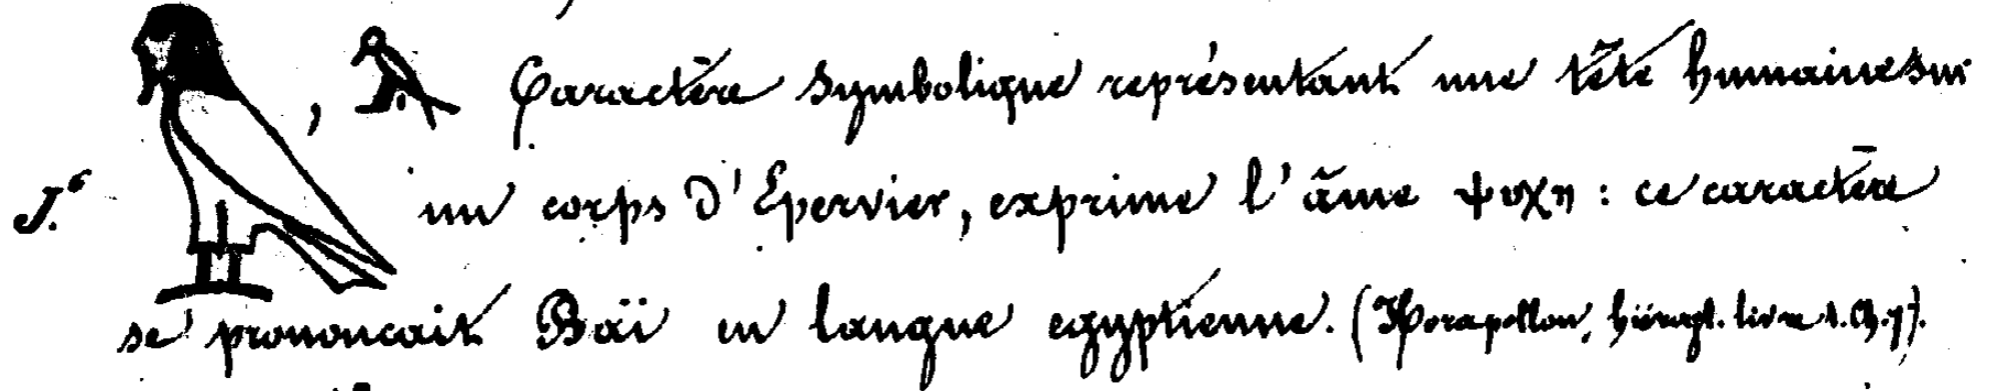 , Caractère symbolique représentant une tête humaine sur
un corps d'Epervier, exprime l'âme ψυχη : ce caractère
se prononcait Baï en langue egyptienne. (Horapollon, hiérogl. livre 1. Ch. 7).